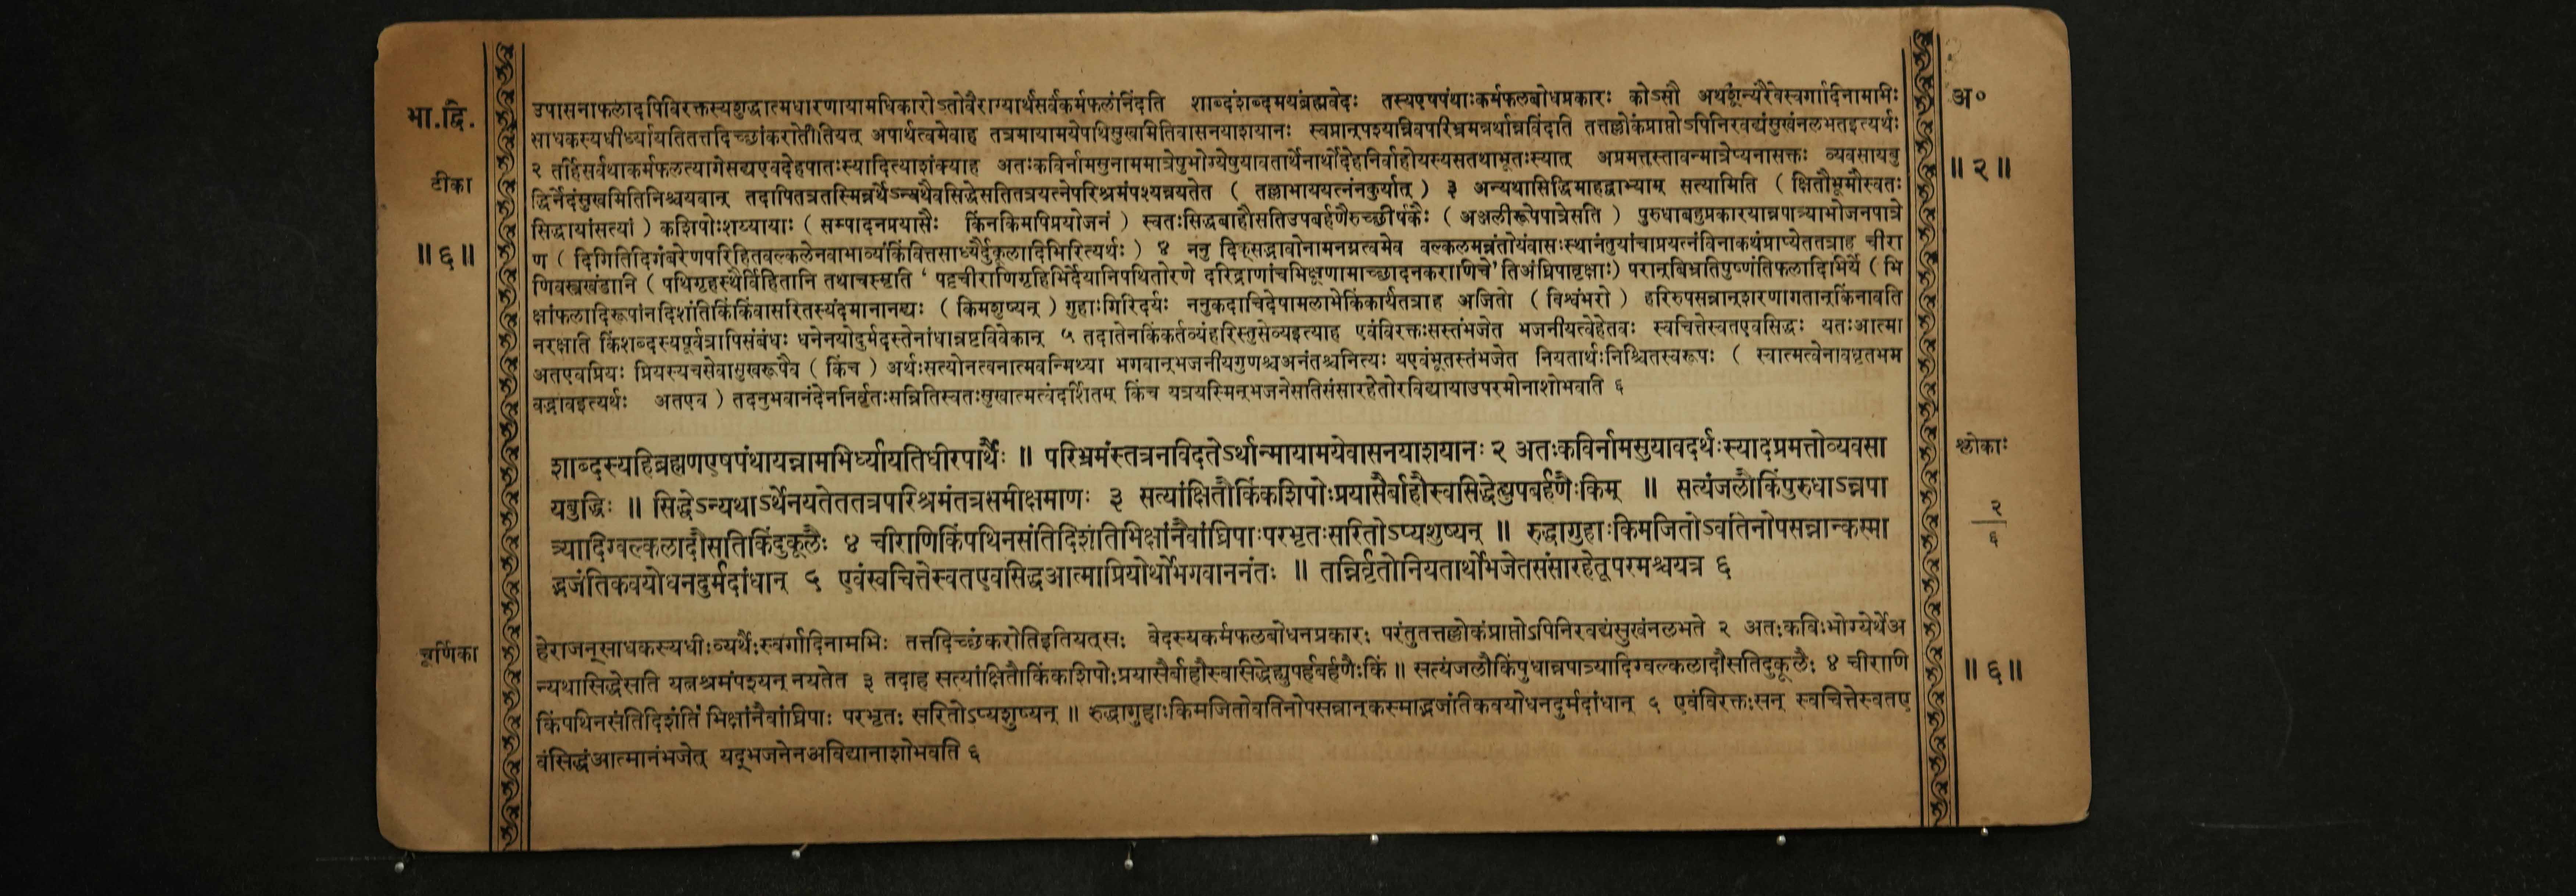 भा.द्वि.
टीका
॥ ६ ॥
अ०
॥ २ ॥
उपासनाफलादपिविरक्तस्यशुद्धात्मधारणायामधिकारोऽतोवैराग्यार्थंसर्वकर्मफलंनिंदति शाब्दंशब्दमयंब्रह्मवेदः तस्यएषपंथाःकर्मफलबोधप्रकारः कोऽसौ अथशून्यैरेवस्वर्गादिनामभिः
साधकस्यधीर्ध्यायतितत्तदिच्छांकरोतीतियत् अपार्थत्वमेवाह तत्रमायामयेपथिसुखमितिवासनयाशयानः स्वप्नान्पश्यन्निवपरिभ्रमन्नर्थान्नविंदति तत्तल्लोकंप्राप्तोऽपिनिरवद्यंसुखंनलभतइत्यर्थः
२ तर्हिसर्वथाकर्मफलत्यागेसद्यएवदेहपातःस्यादित्याशंक्याह अतःकविर्नामसुनाममात्रेषुभोग्येषुयावतार्थेनार्थोदेहनिर्वाहोयस्यसतथाभूतःस्यात् अप्रमत्तस्तावन्मात्रेप्यनासक्तः व्यवसायबु
द्धिर्नेदंसुखमितिनिश्चयवान् तदापितत्रतस्मिन्नर्थेऽन्यथैवसिद्धेसतितत्रयत्नेपरिश्रमंपश्यन्नयतेत ( तल्लाभाययत्नंनकुर्यात् ) ३ अन्यथासिद्धिमाहद्वाभ्याम् सत्यामिति ( क्षितौभूमौस्वतः
सिद्धायांसत्यां ) कशिपोःशय्यायाः ( सम्पादनप्रयासैः किंनकिमपिप्रयोजनं ) स्वतःसिद्धबाहौसतिउपबर्हणैरुच्छीर्षकैः ( अञ्जलीरूपेपात्रेसति ) पुरुधाबहुप्रकारयान्नपात्र्याभोजनपात्रे
ण ( दिगितिदिगंबरेणपरिहितवल्कलेनवाभाव्यंकिंवित्तसाध्यैर्दुकूलादिभिरित्यर्थः ) ४ ननु दिक्सद्भावोनामनग्नत्वमेव वल्कलमन्नंतोयंवासःस्थानंतुयांचाप्रयत्नंविनाकथंप्राप्येततत्राह चीरा
णिवस्त्रखंडानि ( पथिगृहस्थैर्विहितानि तथाचस्मृति ‘ पट्टचीराणिगृहिभिर्देयानिपथितोरणे दरिद्राणांचभिक्षूणामाच्छादनकराणिचे’तिअंघ्रिपावृक्षाः) परान्बिभ्रतिपुष्णंतिफलादिभिर्ये ( भि
क्षांफलादिरूपांनदिशांतिकिंकिंवासरितस्यंदमानानद्यः ( किमशुष्यन् ) गुहाःगिरिदर्यः ननुकदाचिदेषामलाभेकिंकार्यंतत्राह अजितो ( विश्वंभरो ) हरिरुपसन्नान्शरणागतान्किंनावति
नरक्षाति किंशब्दस्यपूर्वत्रापिसंबंधः धनेनयोदुर्मदस्तेनांधान्नष्टविवेकान् ५ तदातेनकिंकर्तव्यंहरिस्तुसेव्यइत्याह एवंविरक्तःसस्तंभजेत भजनीयत्वेहेतवः स्वचित्तेस्वतएवसिद्धः यतःआत्मा
अतएवप्रियः प्रियस्यचसेवासुखरूपैव ( किंच ) अर्थःसत्योनत्वनात्मवन्मिथ्या भगवान्भजनीयगुणश्चअनंतश्चनित्यः यएवंभूतस्तंभजेत नियतार्थःनिश्चितस्वरूपः ( स्वात्मत्वेनावधृतभम
वद्भावइत्यर्थः अतएव ) तदनुभवानंदेननिर्वृतःसन्नितिस्वतःसुखात्मत्वंदर्शितम् किंच यत्रयस्मिन्भजनेसतिसंसारहेतोरविद्यायाउपरमोनाशोभवाति ६
शाब्दस्यहिब्रह्मणएषपंथायन्नामभिर्ध्यायतिधीरपार्थैः ॥ परिभ्रमंस्तत्रनविदतेऽर्थान्मायामयेवासनयाशयानः २ अतःकविर्नामसुयावदर्थःस्यादप्रमत्तोव्यवसा
यबुद्धिः ॥ सिद्धेऽन्यथाऽर्थेनयतेततत्रपरिश्रमंतत्रसमीक्षमाणः ३ सत्यांक्षितौकिंकशिपोःप्रयासैर्बाहौस्वसिद्धेह्युपबर्हणैःकिम् ॥ सत्यंजलौकिंपुरुधाऽन्नपा
त्र्यादिग्वल्कलादौसतिकिंदुकूलैः ४ चीराणिकिंपथिनसंतिदिशंतिभिक्षांनैवांघ्रिपाःपरभृतःसरितोऽप्यशुष्यन् ॥ रुद्धागुहाःकिमजितोऽवतिनोपसन्नान्कस्मा
द्भजंतिकवयोधनदुर्मदांधान् ५ एवंस्वचित्तेस्वतएवसिद्धआत्माप्रियोर्थोभगवाननंतः ॥ तन्निर्वृतोनियतार्थोभजेतसंसारहेतूपरमश्चयत्र ६
श्लोकाः
२
६
चूर्णिका
हेराजन्साधकस्यधीःव्यर्थैःस्वर्गादिनामभिः तत्तदिच्छंकरोतिइतियत्सः वेदस्यकर्मफलबोधनप्रकारः परंतुतत्तल्लोकंप्राप्तोऽपिनिरवद्यंसुखंनलभते २ अतःकविःभोग्येर्थेअ
न्यथासिद्धेसति यत्नश्रमंपश्यन् नयतेत ३ तदाह सत्यांक्षितौकिंकशिपोःप्रयासैर्बाहौस्वासिद्धेह्युपर्हबर्हणैःकिं ॥ सत्यंजलौकिंपुधान्नपात्र्यादिग्वल्कलादौसतिदुकूलैः ४ चीराणि
किंपथिनसंतिदिशंतिं भिक्षांनैवांघ्रिपाः परभृतः सरितोऽप्यशुष्यन् ॥ रुद्धागुहाःकिमजितोवतिनोपसन्नान्कस्माद्भजंतिकवयोधनदुर्मदांधान् ५ एवंविरक्तःसन् स्वचित्तेस्वतए
वंसिद्धंआत्मानंभजेत् यद्भजनेनअविद्यानाशोभवति ६
॥ ६ ॥